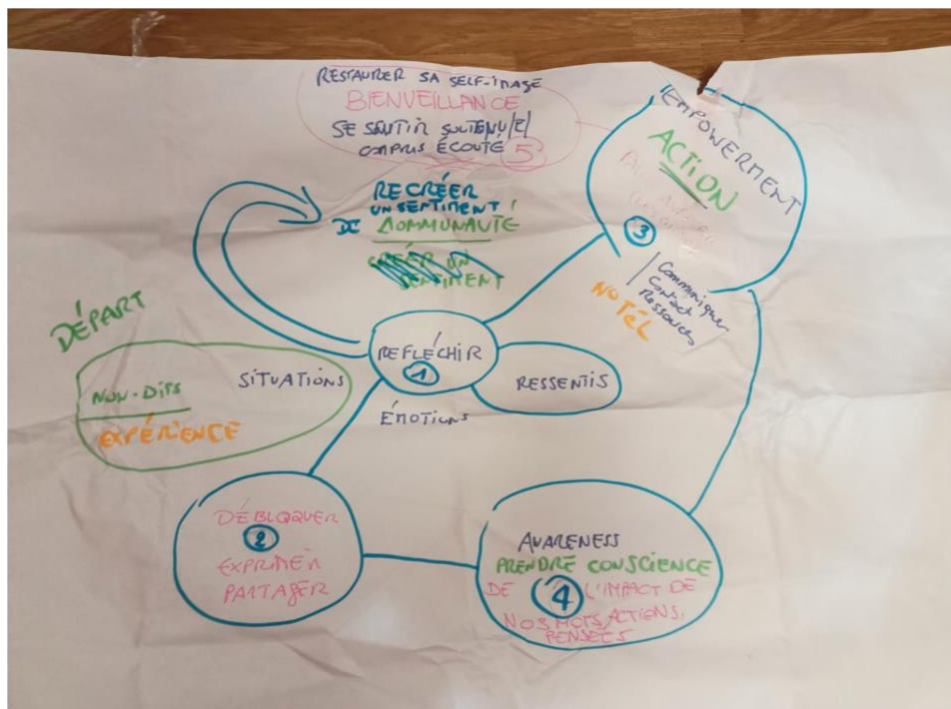 RESTAURER SA SELF-IMAGE
BIENVEILLANCE
SE SENTIR SOUTENU/E/
COMPRIS ÉCOUTÉ 5
EMPOWERMENT
ACTION
3
Communiquer
Contact
Ressources
NO TÉL
RECRÉER
UN SENTIMENT
DE COMMUNAUTÉ
CRÉER UN
SENTIMENT
DÉPART
NON-DITS
SITUATIONS
EXPÉRIENCE
REFLÉCHIR
1
RESSENTIS
ÉMOTIONS
DÉBLOQUER
2
EXPRIMER
PARTAGER
AWARENESS
PRENDRE CONSCIENCE
DE 4 L'IMPACT DE
NOS MOTS, ACTIONS,
PENSÉES